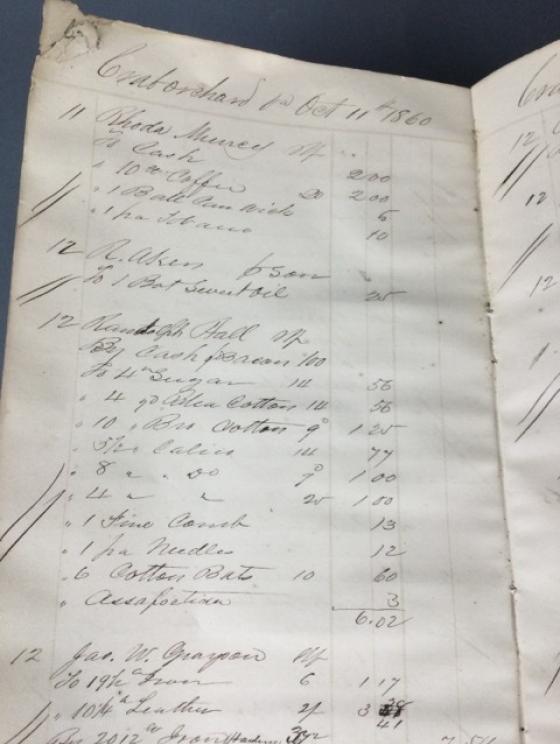 Craborchard Oct 11th 1860
11 Rhoda Muncy
To Cash 2 00
" 10 lb Coffee 20 2 00
" 1 Ball Can Wick 5
" 1 pa 10
12 R. Aken & Son
To 1 Bot Sweet Oil 25
12 Randolph Hall
By Cash & Bacon 100
To 4 lb Sugar 14 56
" 4 yd Cotton 14 56
" 10 " Bro Cotton 1 25
" 5½ " Calico 14 77
" 8 " " Do 1 00
" 4 " " 25 1 00
" 1 Fine Comb 13
" 1 pa Needles 12
" 6 Cotton Bats 10 60
" Assafoetida 3
6.02
12 Jas. W. Grayson
To 19½ lb Iron 6 1 17
" 10¼ lb Leather 3
41
By 2012 lb Iron